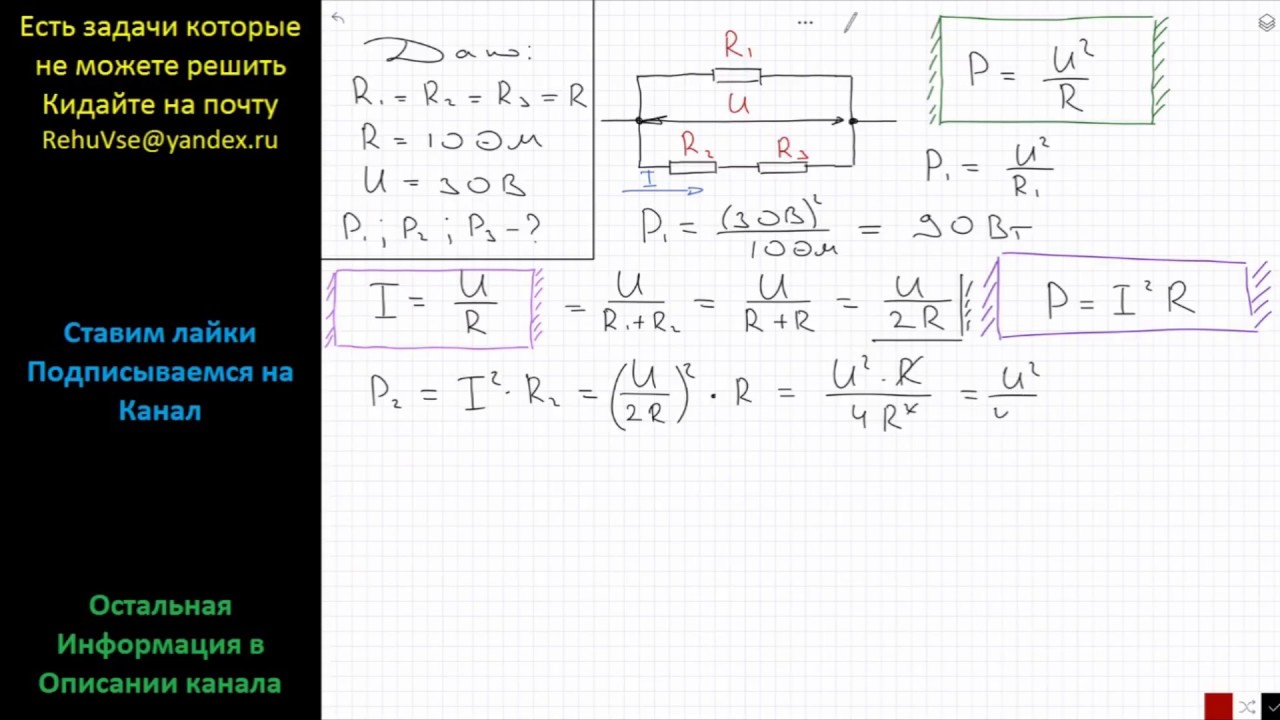 Есть задачи которые
не можете решить
Кидайте на почту
RehuVse@yandex.ru
Ставим лайки
Подписываемся на
Канал
Остальная
Информация в
Описании канала
Дано:
R₁ = R₂ = R₃ = R
R = 10 Ом
U = 30 В
P₁ ; P₂ ; P₃ - ?
R₁
U
R₂ R₃
I
P = U²/R
P₁ = U²/R₁
P₁ = (30В)²/10 Ом = 90 Вт
I = U/R = U/(R₁+R₂) = U/(R+R) = U/2R
P = I² R
P₂ = I² · R₂ = (U/2R)² · R = U² · R/4R² = U²